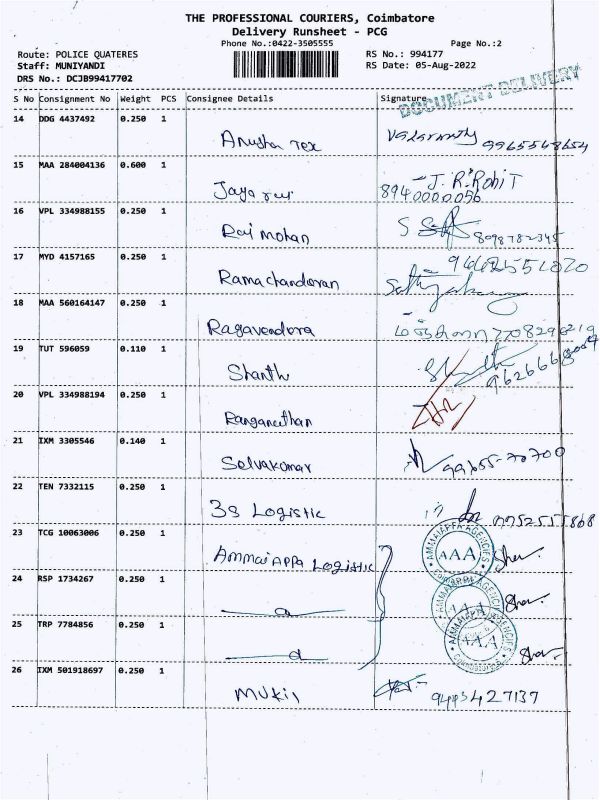 THE PROFESSIONAL COURIERS, Coimbatore
Delivery Runsheet - PCG
Phone No.:0422-3505555 Page No.:2
Route: POLICE QUATERES RS No.: 994177
Staff: MUNIYANDI RS Date: 05-Aug-2022
DRS No.: DCJB99417702
DOCUMENT DELIVERY
S No Consignment No Weight PCS Consignee Details Signature
14 DDG 4437492 0.250 1
Anusha rex
15 MAA 284004136 0.600 1
Jaya J.R.Rohit
8940000056
16 VPL 334988155 0.250 1
Raj mohan 8098782345
17 MYD 4157165 0.250 1
Ramachandoran
18 MAA 560164147 0.250 1
Ragavendora
19 TUT 596059 0.110 1
Shanthi
20 VPL 334988194 0.250 1
Ranganathan
21 IXM 3305546 0.140 1
Selvakumar
22 TEN 7332115 0.250 1
3S Logistic
23 TCG 10063006 0.250 1
Ammaiappa Logistic
AMMAIAPPA AGENCIES
AAA
24 RSP 1734267 0.250 1
AAA
25 TRP 7784856 0.250 1
AAA
26 IXM 501918697 0.250 1
Mukil